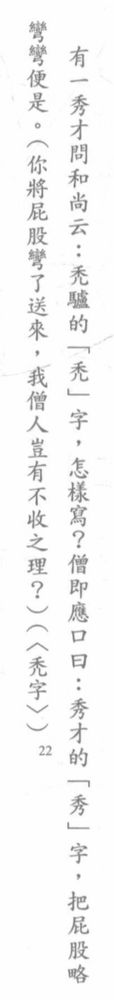 有一秀才問和尚云：禿驢的「禿」字，怎樣寫？僧即應口曰：秀才的「秀」字，把屁股略
彎彎便是。（你將屁股彎了送來，我僧人豈有不收之理？）（〈禿字〉）22